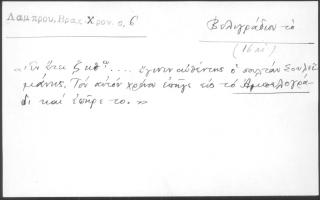 Λαμπρου, Βραχ. Χρον. σ, 6
Βελιγράδιον τὸ
(16 αἰ)
«Ἐν ἔτει ζ κθῳ .... ἔγινεν αὐθέντης ὁ σουλτὰν Σουλεϊ-
μάνης. Τὸν αὐτὸν χρόνον ἐπῆγε εἰς τὸ Ἀρπελογρά-
δι καὶ ἐπῆρε το. »